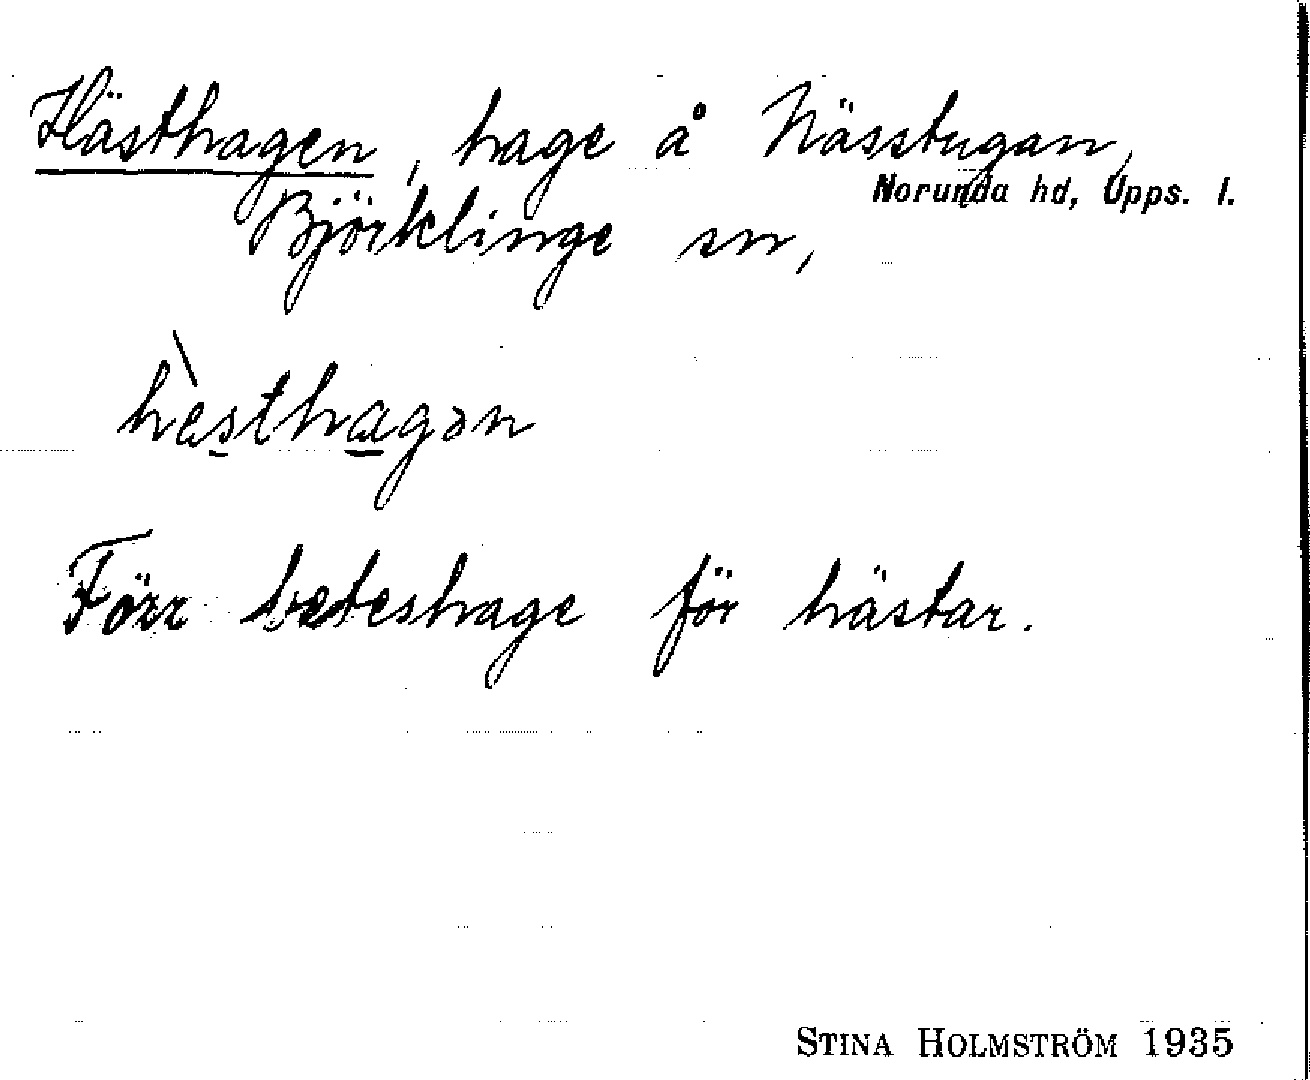 Hästhagen, hage å Nässtugan,
Norunda hd, Upps. l.
Björklinge sn,
hὲsthagən
Förr beteshage för hästar.
STINA HOLMSTRÖM 1935